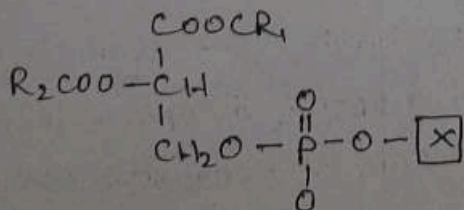 COOCR₁
R₂COO-CH
O
CH₂O-P-O-X
O